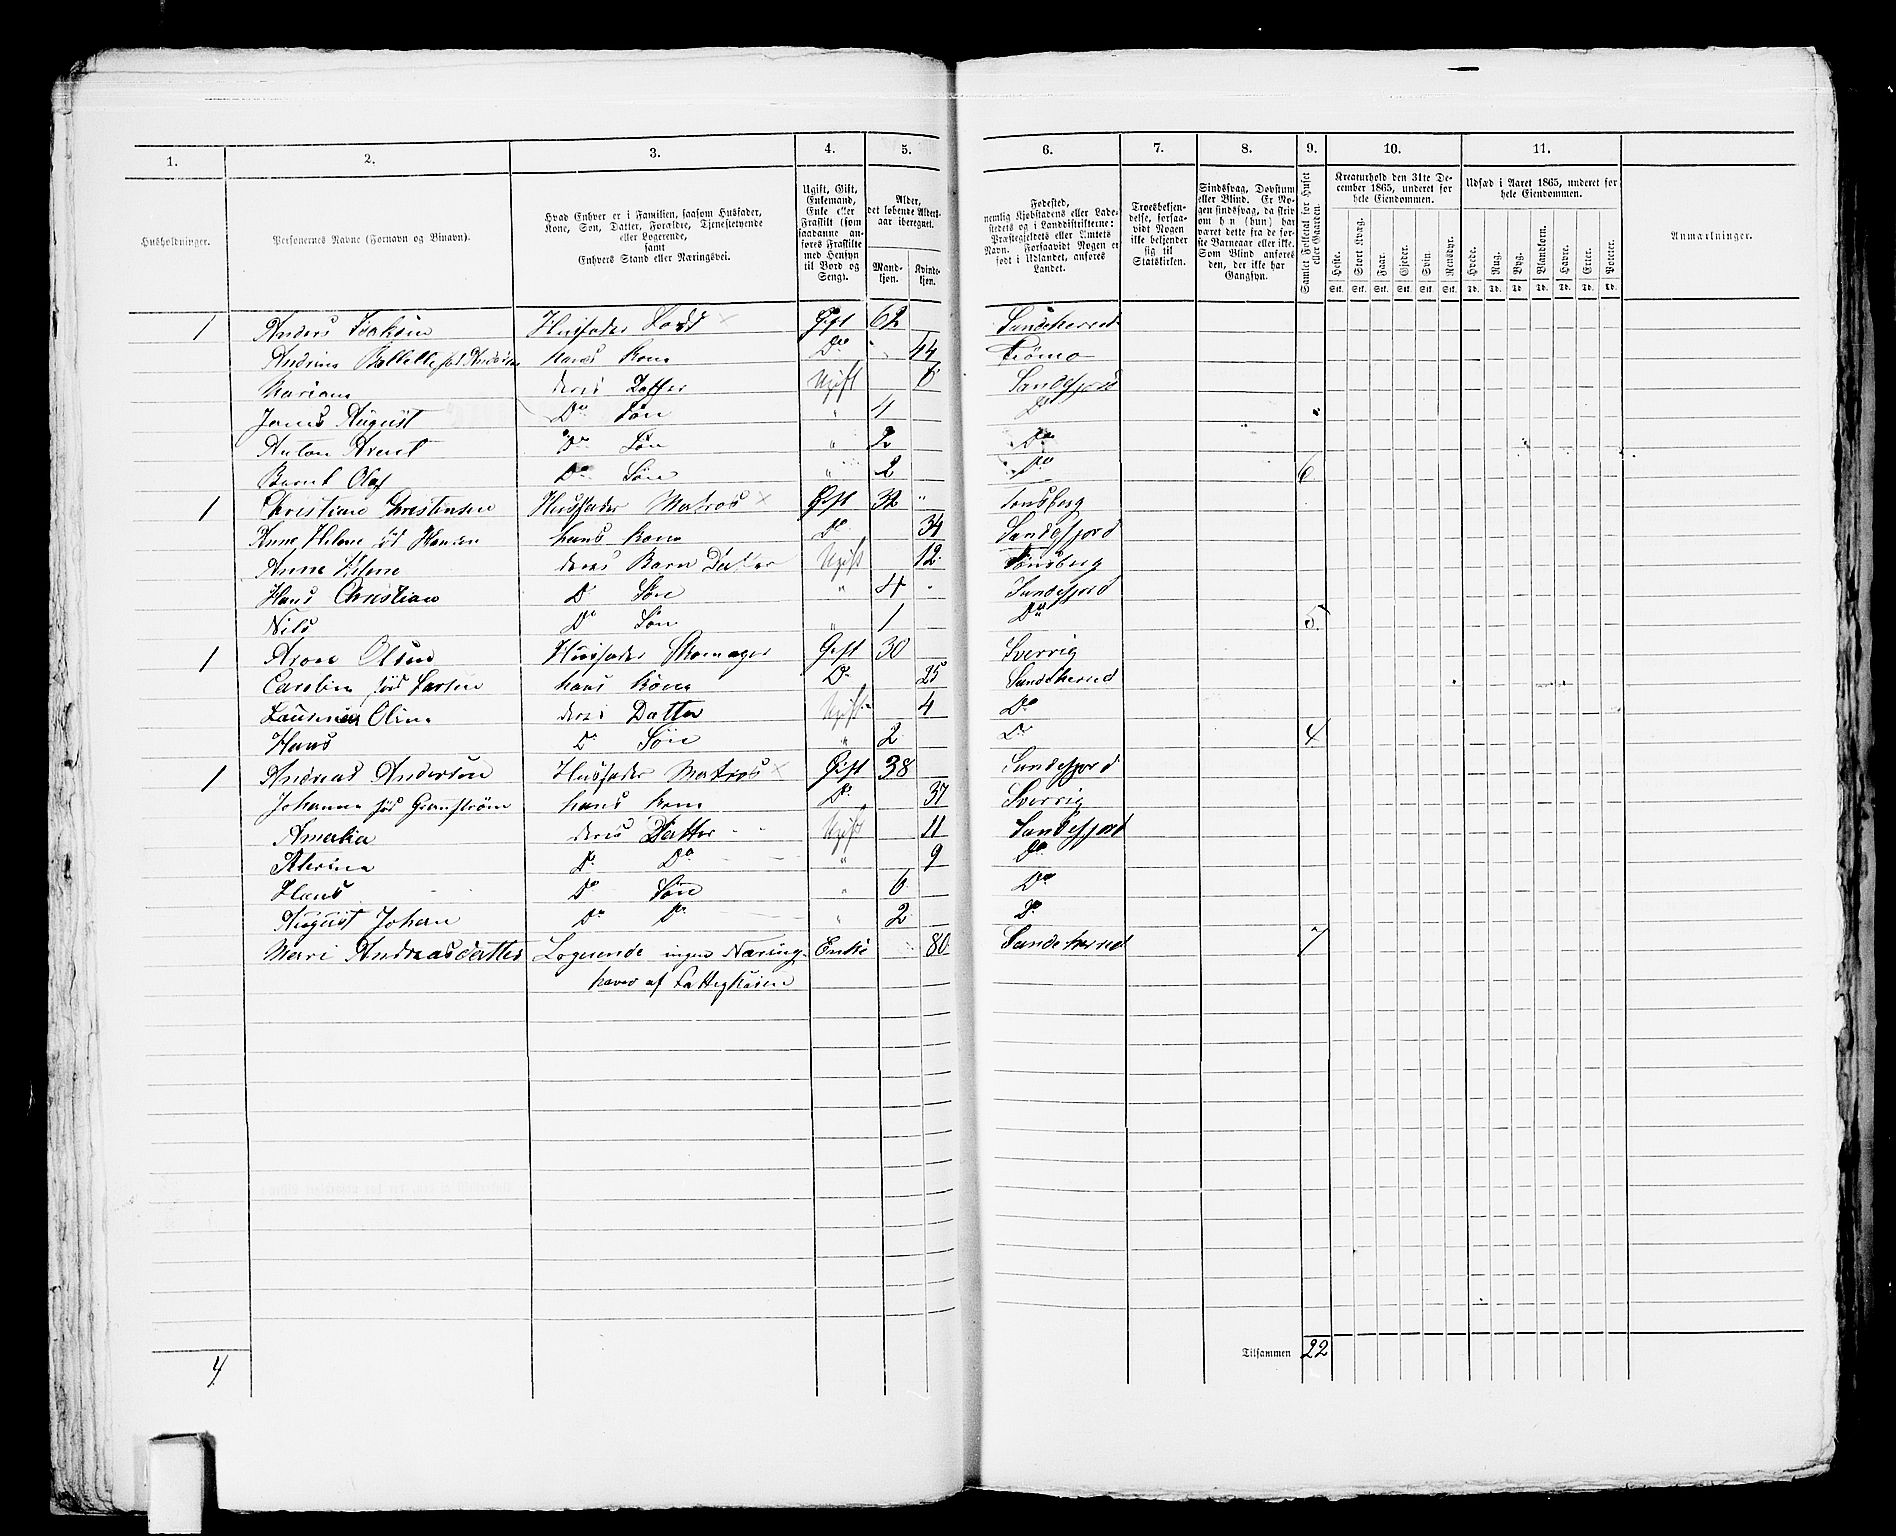 1. 2. 3. 4. 5. 6. 7. 8. 9. 10. 11.
Husholdninger.
Personernes Navne (Fornavn og Binavn).
Hvad Enhver er i Familien, saasom Husfader,
Kone, Søn, Datter, Forældre, Tjenestetyende
eller Logerende,
samt
Enhvers Stand eller Næringsvei.
Ugift, Gift,
Enkemand,
Enke eller
Fraskilt (som
saadanne an-
føres Fraskilte
med Hensyn
til Bord og
Seng).
Alder,
det løbende Alders-
aar iberegnet.
Mand-
kjøn.
Kvinde-
kjøn.
Fødested,
nemlig Kjøbstadens eller Lade-
stedets og i Landdistrikterne:
Præstegjeldets eller Amtets
Navn. Forsaavidt Nogen er
født i Udlandet, anføres
Landet.
Troesbekjen-
delse, forsaa-
vidt Nogen
ikke bekjender
sig til
Statskirken.
Sindssvag, Døvstum
eller Blind. Er No-
gen sindssvag, da skriv
om han (hun) har
været dette fra de før-
ste Barneaar eller ikke.
Som Blind anføres
den, der ikke har
Gangsyn.
Samlet Folketal for Huset
eller Gaarden.
Kreaturhold den 31te De-
cember 1865, underet for
hele Eiendommen.
Heste. Stort Kvæg. Faar. Gjeder. Svin. Rensdyr.
Stk. Stk. Stk. Stk. Stk. Stk.
Udsæd i Aaret 1865, underet for
hele Eiendommen.
Hvede. Rug. Byg. Blandkorn. Havre. Erter. Poteter.
Td. Td. Td. Td. Td. Td. Td.
Anmærkninger.
1 Anders Husfader Gift 62 Sandeherred
Andrine hans Kone Do 44 Tromø
Mariane deres Datter Ugift 6 Sandefjord
Jens August Do Søn " 4 Do
Anton Do Søn " 2 Do
Bernt Olaf Do Søn " 2 Do 6
1 Christian Christensen Husfader Matros × Gift 32 " Tønsberg
Anne Helene fød Hansen hans Kone Do 34 Sandefjord
Anne Helene deres Barn Datter Ugift 12 Tønsberg
Hans Christian D Søn " 4 Sandefjord
Nils Do Søn " 1 Do 5
1 Aron Olsen Husfader Skomager Gift 30 Sverrig
Caroline fød Larsen hans Kone Do 25 Sandeherred
Oline deres Datter Ugift 4 Do
Hans D Søn " 2 Do 4
1 Andreas Andersen Husfader Matros × Gift 38 Sandefjord
Johanne fød Granstrøm hans Kone Do 37 Sverrig
Amalia deres Datter Ugift 11 Sandefjord
Do Do " 9 Do
Hans Do Søn " 6 Do
August Johan Do Do " 2 Do
Mari Andreasdatter Logerende ingen Næring Enke 80 Sandeherred 7
haves af Fattigkassen
4 Tilsammen 22